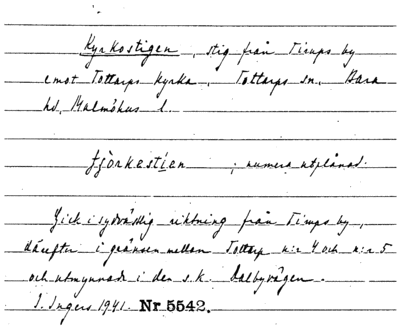 Kyrkostigen, stig från Tirups by
emot Tottarps kyrka, Tottarps sn. Bara
hd, Malmöhus l.
; numera utplånad.
Gick i sydvästlig riktning från Tirups by,
därefter i gränsen mellan Tottarp n:r 4 och n:r 5
och utmynnade i den s.k. Dalbyvägen.
I. Ingers 1941. Nr 5542.